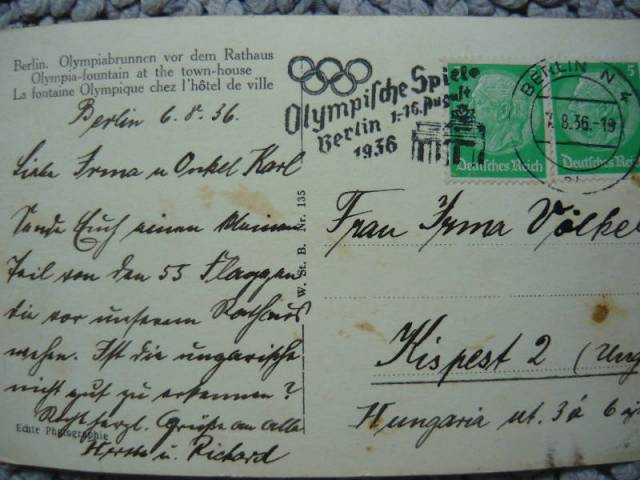 Berlin. Olympiabrunnen vor dem Rathaus
Olympia-fountain at the town-house
La fontaine Olympique chez l'hôtel de ville
Berlin 6.8.36.
Liebe Irma u Onkel Karl
Sende Euch einen kleinen
Teil von den 53 Flaggen
die vor unserem Rathaus
wehen. Ist die ungarische
nicht gut zu erkennen?
herzl. Grüße an alle
u. Richard
Echte Photographie
W. St. B. Nr. 135
Olympische Spiele
Berlin 1.-16. August
1936
BERLIN N 4
7.8.36.-19
5
Deutsches Reich
Deutsches Reich
Frau Irma Völkel
Kispest 2 (Ung
Hungaria ut. 3á 6